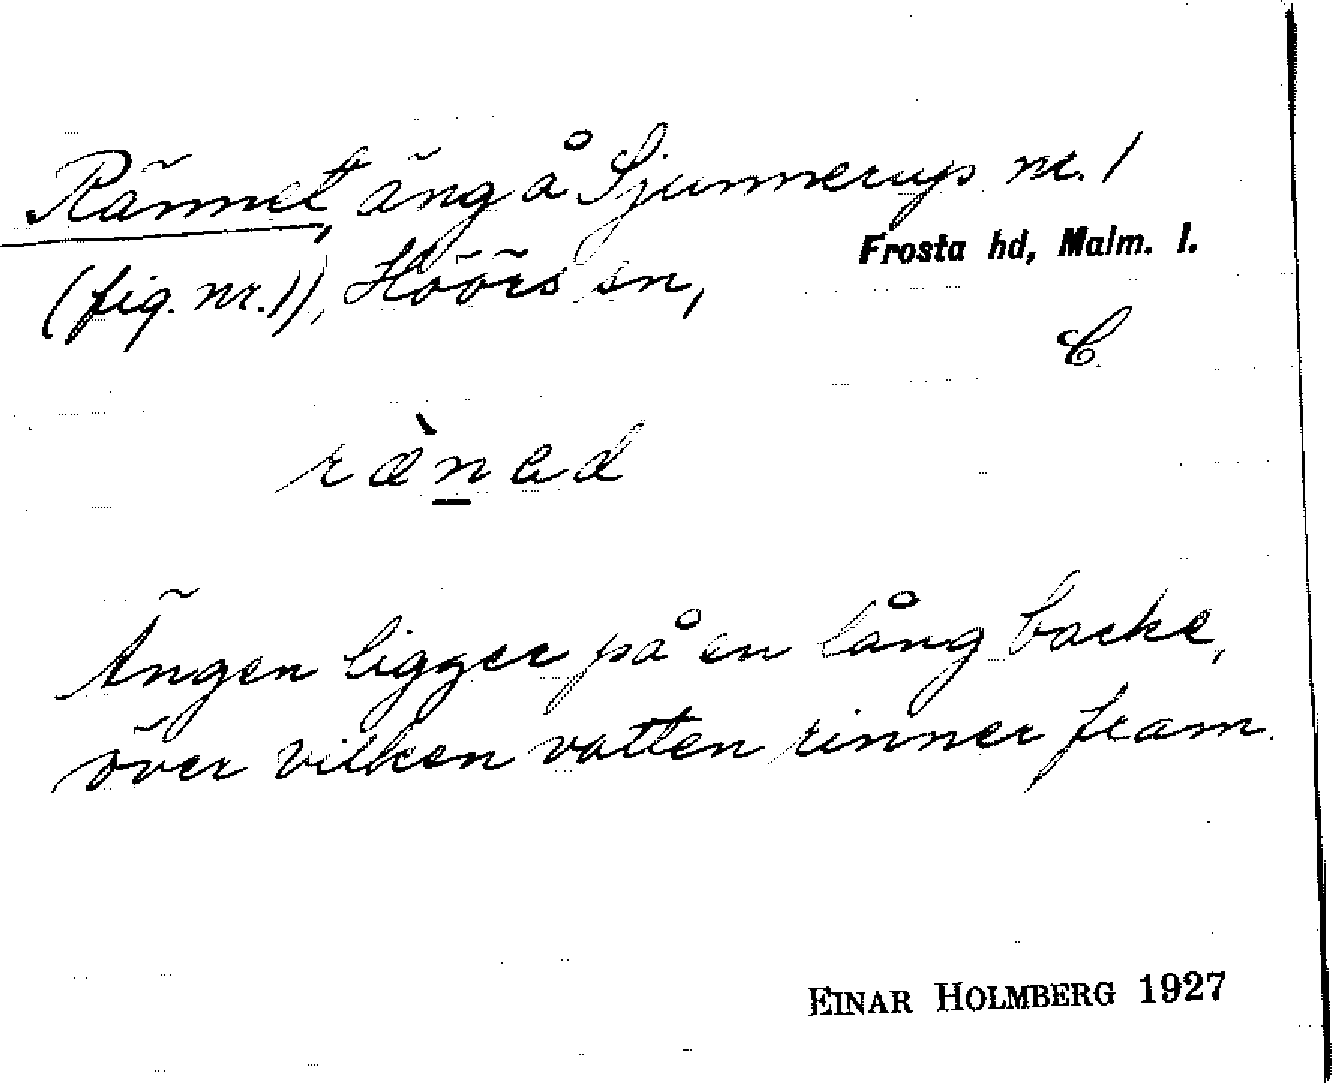 Rännet, äng å Sjunnerup nr. 1
Frosta hd, Malm. l.
(fig. nr. 1), Höörs sn,
C
rænəd
Ängen ligger på en lång backe,
över vilken vatten rinner fram.
EINAR HOLMBERG 1927